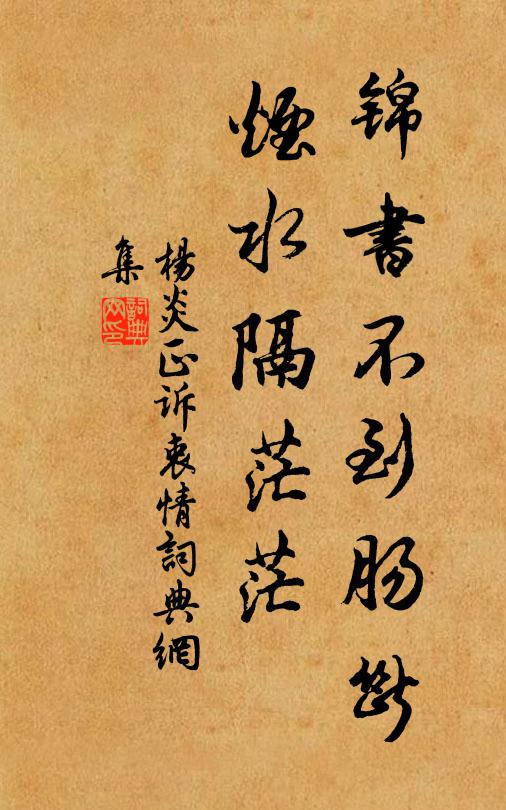 锦书不到肠断
烟水隔茫茫
杨炎正诉衷情词典網
集
詞典网印